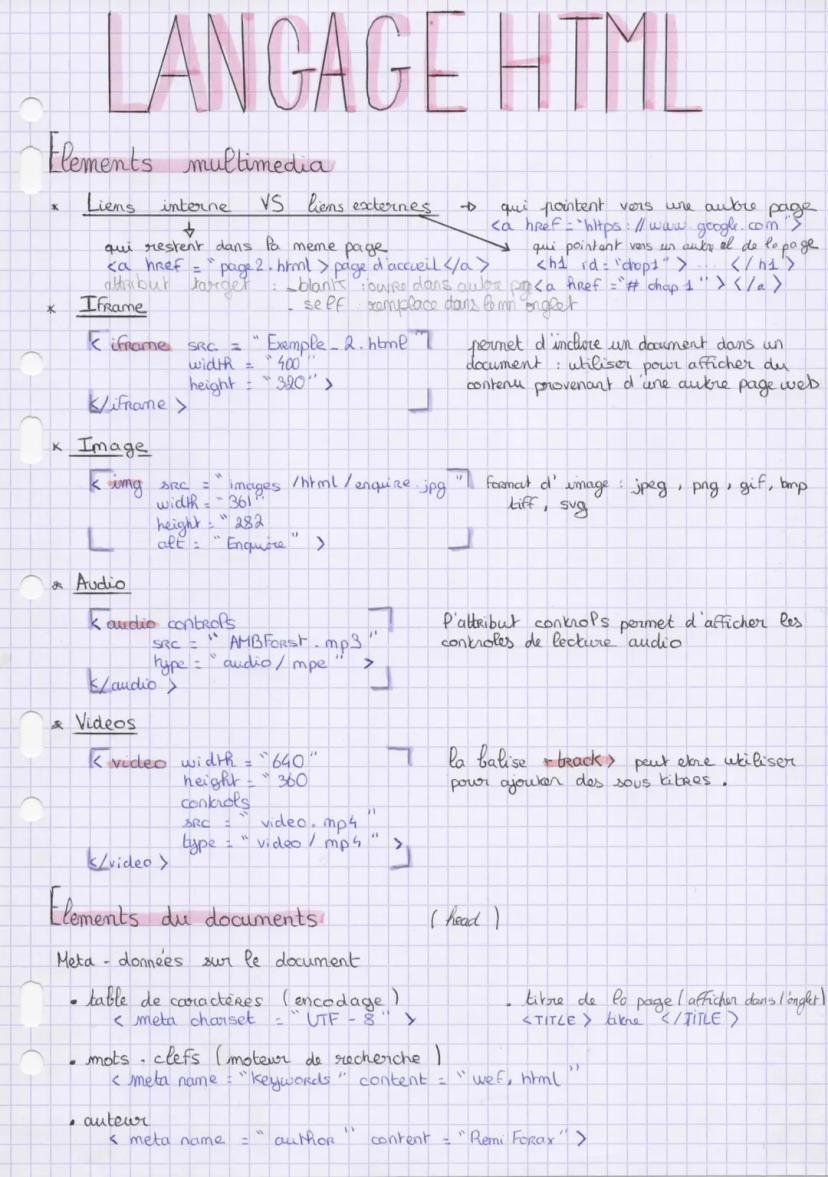 LANGAGE HTML
Elements multimedia
* Liens interne VS liens externes → qui pointent vers une autre page
<a href = "https://www.google.com">
qui restent dans la meme page
qui pointant vers un autre el de la page
<a href = "page2.html > page d'accueil </a>
<h1 id = "chap1" > ... </h1>
attribut target : _blank : ouvre dans autre pg
<a href = "# chap 1" > </a>
- self : remplace dans le mm onglet
* IFrame
< iframe src = "Exemple_2.html"
width = "400"
height = "320" >
</iframe >
permet d'inclure un document dans un
document : utiliser pour afficher du
contenu provenant d'une autre page web
* Image
< img src = "images /html/enquire.jpg"
width = "361"
height = "282
alt = "Enquire" >
format d'image : jpeg, png, gif, bmp
tiff, svg
* Audio
< audio controls
src = "AMBForst.mp3"
type = "audio/mpe" >
</audio >
l'attribut controls permet d'afficher les
controles de lecture audio
* Videos
< video width = "640"
height = "360
controls
src = "video.mp4"
type = "video/mp4" >
</video >
la balise <track> peut etre utiliser
pour ajouter des sous titres.
Elements du documents (head)
Meta-données sur le document
• table de caractères (encodage)
< meta charset = "UTF-8" >
• titre de la page (afficher dans l'onglet)
<TITLE> titre </TITLE>
• mots-clefs (moteur de recherche)
< meta name = "keywords" content = "wef, html"
• auteur
< meta name = "author" content = "Remi Forax" >